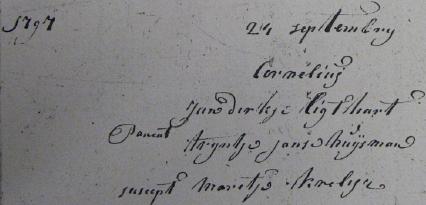 1797 24 septembry
Cornelius
Jan dirkse Ligthart
Parent
Tryntje jans Huijsman
suscept Maretje Krelisse